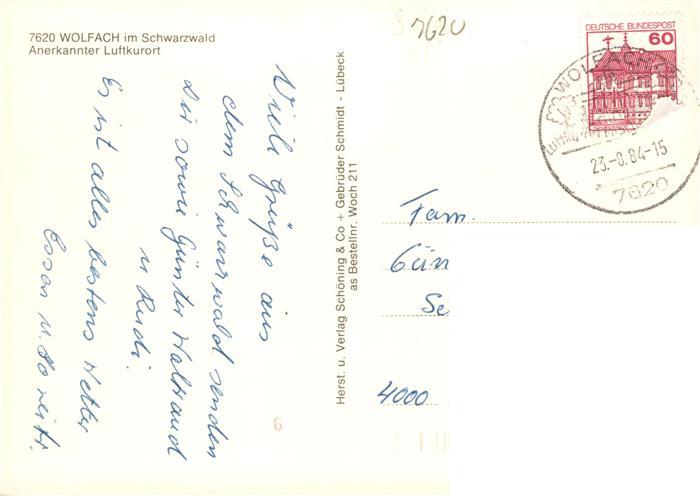 7620 WOLFACH im Schwarzwald
Anerkannter Luftkurort
Viele Grüße aus
dem Schwarzwald senden
Dir sowie Günter Waltraud
u Rudi.
Es ist alles bestens Wetter
Essen u. so weiter.
Herst. u. Verlag Schöning & Co + Gebrüder Schmidt - Lübeck
as Bestellnr. Woch 211
7620
DEUTSCHE BUNDESPOST
60
WOLFACH
23.-8.84-15
7620
Fam.
Gün
Se
4000
6